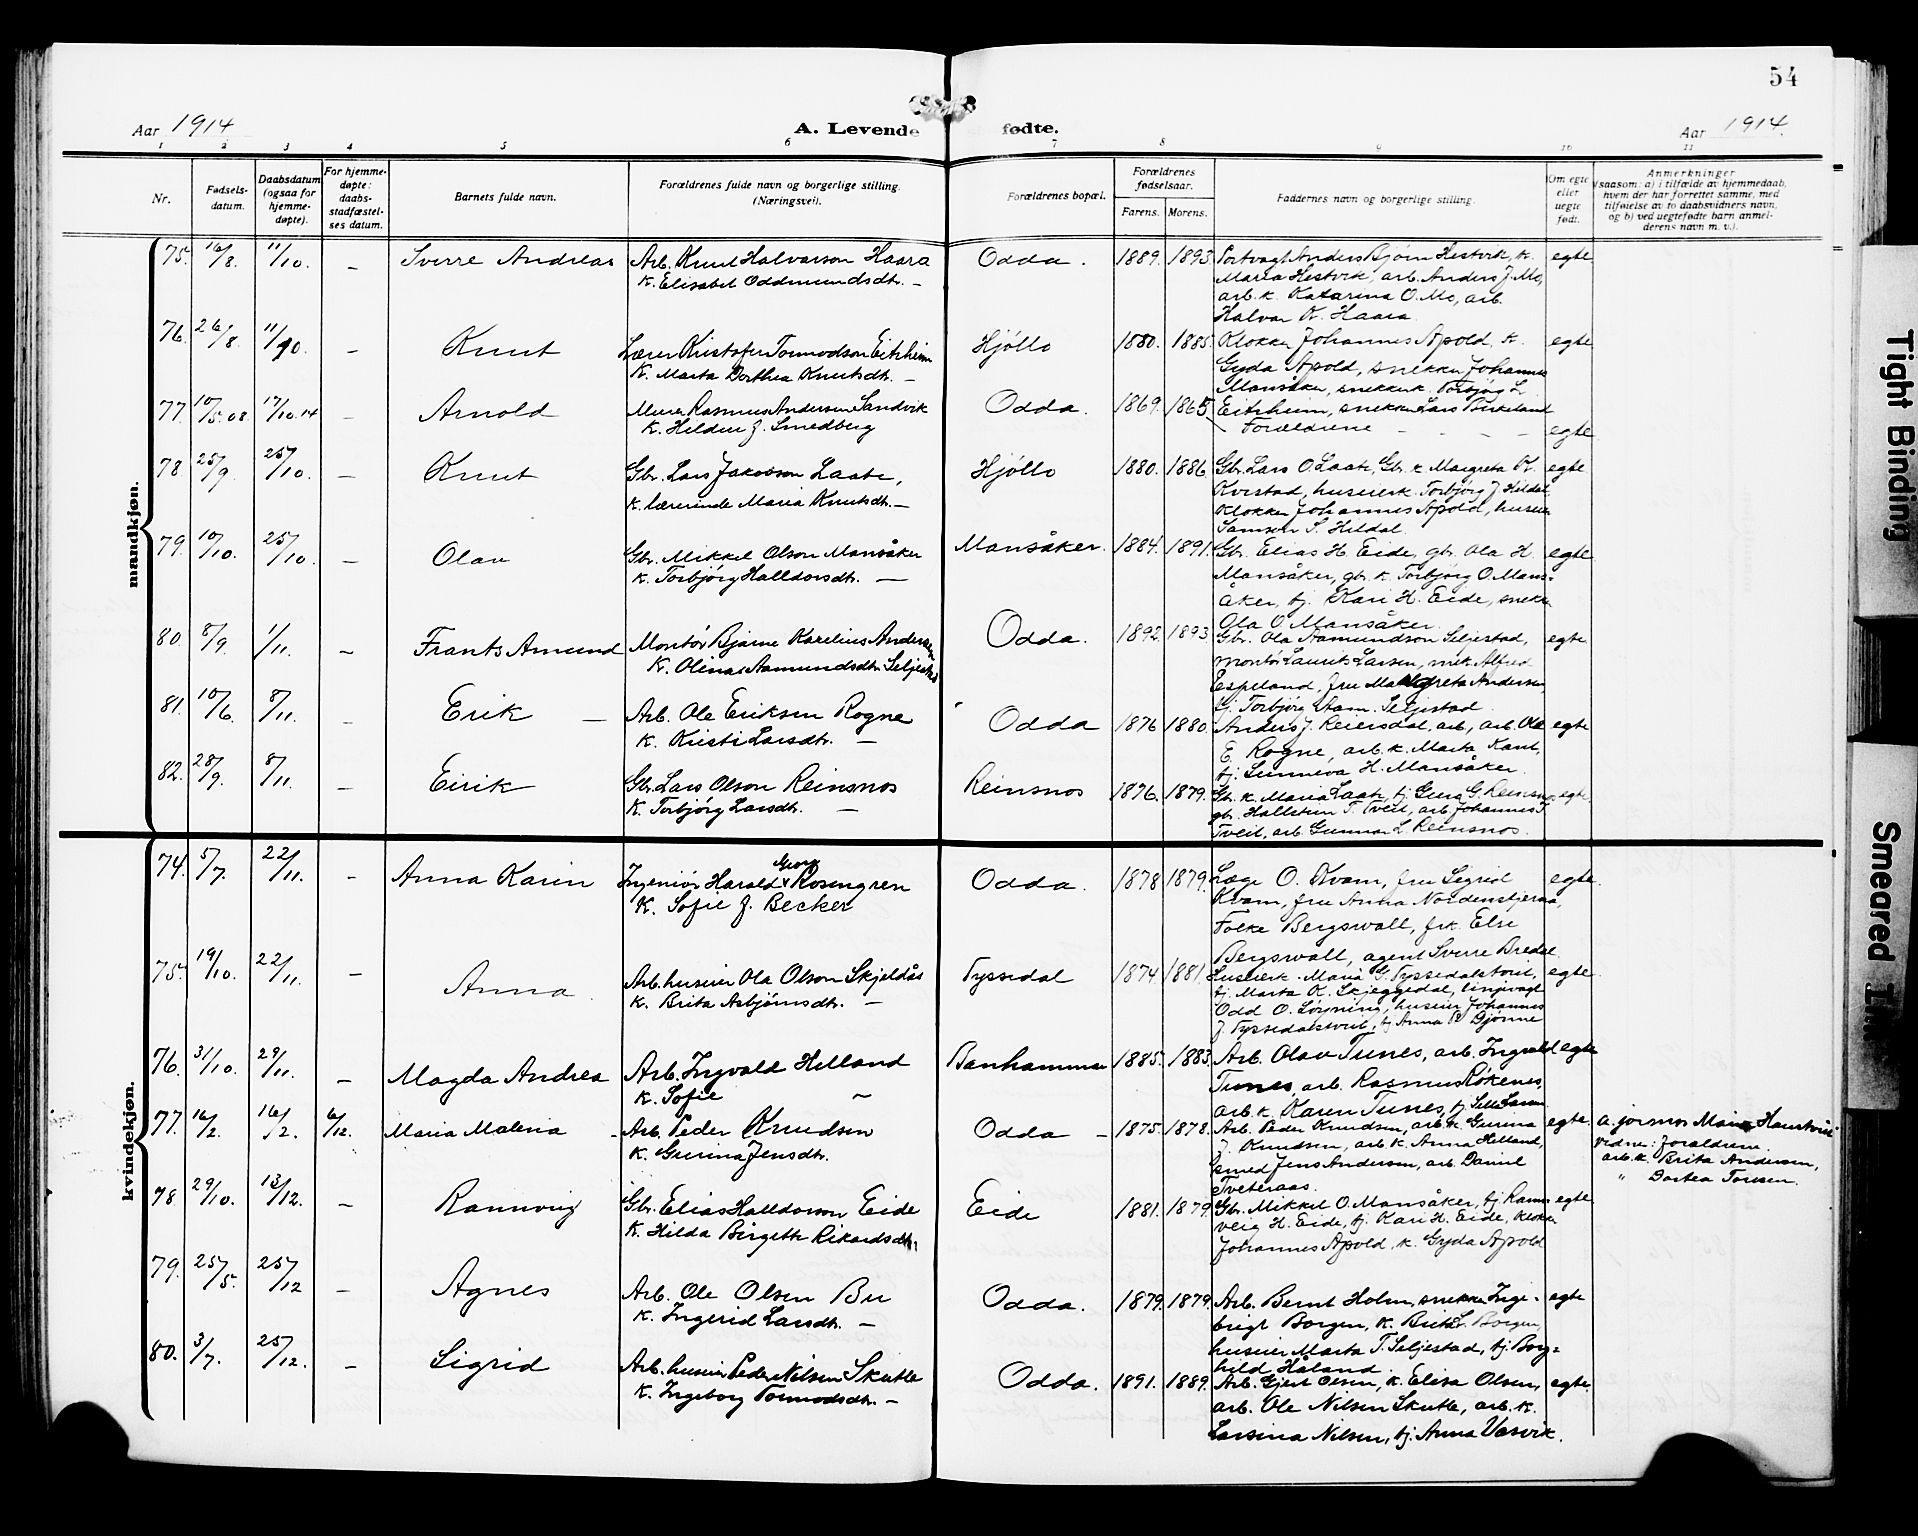 54
Aar 1914
A. Levende fødte.
Aar 1914.
1 2 3 4 5 6 7 8 9 10 11
Nr.
Fødsels-
datum.
Daabsdatum
(ogsaa for
hjemme-
døpte).
For hjemme-
døpte:
daabs-
stadfæstel-
ses datum.
Barnets fulde navn.
Forældrenes fulde navn og borgerlige stilling.
(Næringsvei).
Forældrenes bopæl.
Forældrenes
fødselsaar.
Farens. Morens.
Faddernes navn og borgerlige stilling.
Om egte
eller
uegte
født.
Anmerkninger
(saasom: a) i tilfælde av hjemmedaab,
hvem der har forrettet samme, med
tilføielse av to daabsvidners navn,
og b) ved uegtefødte barn anmel-
derens navn m. v.).
mandkjøn.
75. 16/8. 11/10. – Sverre Andreas
Arb. Knut Halvarson Haara
K. Elisabet Oddmundsdtr. –
Odda. 1889. 1893.
Portvagt Anders Bjørn Hestvik, k.
Maria Hestvik, arb. Anders J. Mo,
arb. k. Katarina O. Mo, arb.
Halvar K. Haara
egte
76. 26/8. 11/10. – Knut
Lærer Kristofer Tormodson Eitrheim
K. Marta Dorthea Knutsdtr. –
Hjøllo 1880. 1885.
Klokker Johannes Apold, k.
Gyda Apold, snekker Johannes
Mansåker, snekkerk. Torbjørg L.
Eitrheim, snekker Lars Birkeland
egte
77. 10/5.08. 17/10.14 – Arnold
Murer Rasmus Andersen Sandvik
K. Hildur J. Smedberg
Odda. 1869. 1865
Forældrene – – – –
egte
78 25/9. 25/10. – Knut
Gbr. Lars Jakobson Laate,
k. lærerinde Maria Knutsdtr. –
Hjøllo 1880. 1886.
Gbr. Lars O. Laate, Gbr. k. Margreta K.
Kvestad, huseierk. Torbjørg J. Hildal,
Klokker Johannes Apold, huseier
Samson S. Hildal.
egte
79. 10/10. 25/10. – Olav
Gbr. Mikkel Olson Mansåker
k. Torbjørg Halldorsdtr. –
Mansåker. 1884. 1891.
Gbr. Elias H. Eide, gbr. Ola H.
Mansåker, gbr. k. Torbjørg O. Mans-
åker, tj. Kari H. Eide, snekr.
Ola O. Mansåker.
egte
80. 8/9. 1/11. – Frants Amund
Montør Bjarne Karelius Andersen
K. Olina Aamundsdtr. Seljestad
Odda. 1892. 1893
Gbr. Ola Aamundson Seljestad,
montør Laurits Larsen, mek. Alfred
Espeland, fru Margreta Andersen,
G. Torbjørg Aam. Seljestad.
egte
81. 10/6. 8/11. – Erik –
Arb. Ole Eriksen Rogne
k. Kristi Larsdtr. –
Odda 1876 1880.
Anders J. Reiersdal, arb., arb. Ole
E. Rogne, arb. k. Marta Kant,
tj. Sunniva H. Mansåker.
egte
82. 28/9. 8/11. – Eirik
Gbr. Lars Olson Reinsnos
K. Torbjørg Larsdtr. –
Reinsnos 1876. 1879.
Gbr. k. Maria Laate, tj. Guro G. Reinsnos,
gbr. Hallstein T. Tveit, arb. Johannes T.
Tveit, arb. Gunnar L. Reinsnos.
egte
kvindekjøn.
74. 5/7. 22/11. – Anna Karin
Ingeniør Harald Georg Rosengren
K. Sofie J. Becker
Odda. 1878 1879.
Læge O. Kvam, fru Sigrid
Kvam, fru Anna Nordenstjerna,
Folke Bergswall, frk. Else
Bergswall, agent Sverre Bredal
egte.
75. 19/10. 22/11. – Anna
Arb. huseier Ola Olson Skjeldås
k. Brita Asbjørnsdtr. –
Tyssedal 1874 1881
Huseierk. Maria G. Tyssedalstveit,
tj. Marta K. Skjeggedal, linjevagt
Odd O. Løyning, huseier Johannes
J. Tyssedalstveit, tj. Anna P. Djønne
egte
76. 31/10. 29/11. – Magda Andrea
Arb. Ingvald Helland
k. Sofie –
Banhammar 1885. 1883.
Arb. Olav Tunes, arb. Ingvald
Tunes, arb. Rasmus Røkenes,
arb. k. Karen Tunes, tj. Silla Larsen
egte
77. 16/2. 16/2. 6/12. Maria Malena –
Arb. Peder Knudsen
K. Gurina Jensdtr.
Odda – 1875. 1878.
Arb. Peder Knudsen, arb. k. Gurina
J. Knudsen, arb. k. Anna Helland,
smed Jens Andersen, arb. Daniel
Tveteraas.
egte.
a. jormor Maria Haustveit
Vidne: Forældrene
arb. k. Brita Andersen,
" Dortea Toresen.
78 29/10. 13/12. – Rannveig
Gbr. Elias Halldorson Eide
K. Hilda Birgette Rikardsdtr.
Eide 1881. 1879.
Gbr. Mikkel O. Mansåker, tj. Rann-
veig H. Eide, tj. Kari H. Eide, klokker
Johannes Apold, k. Gyda Apold
egte
79. 25/5. 25/12 – Agnes
Arb. Ole Olsen Bu
k. Ingerid Larsdtr. –
Odda. 1879. 1879.
Arb. Bernt Holm, snekker Inge-
brigt Borgen, k. Brita L. Borgen,
huseier Marta T. Seljestad, tj. Borg-
hild Håland.
egte
80. 3/7. 25/12. – Sigrid
Arb. huseier Peder Nilsen Skutle
K. Ingeborg Tormodsdtr. –
Odda. 1891. 1889.
Arb. Gjert Olsen, k. Elisa Olsen,
arb. Ole Nilsen Skutle, arb. k.
Larsina Nilsen, tj. Anna Vasvik.
egte.
Tight Binding
Smeared Ink